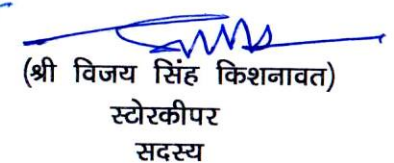 (श्री विजय सिंह किशनावत)
स्टोरकीपर
सदस्य